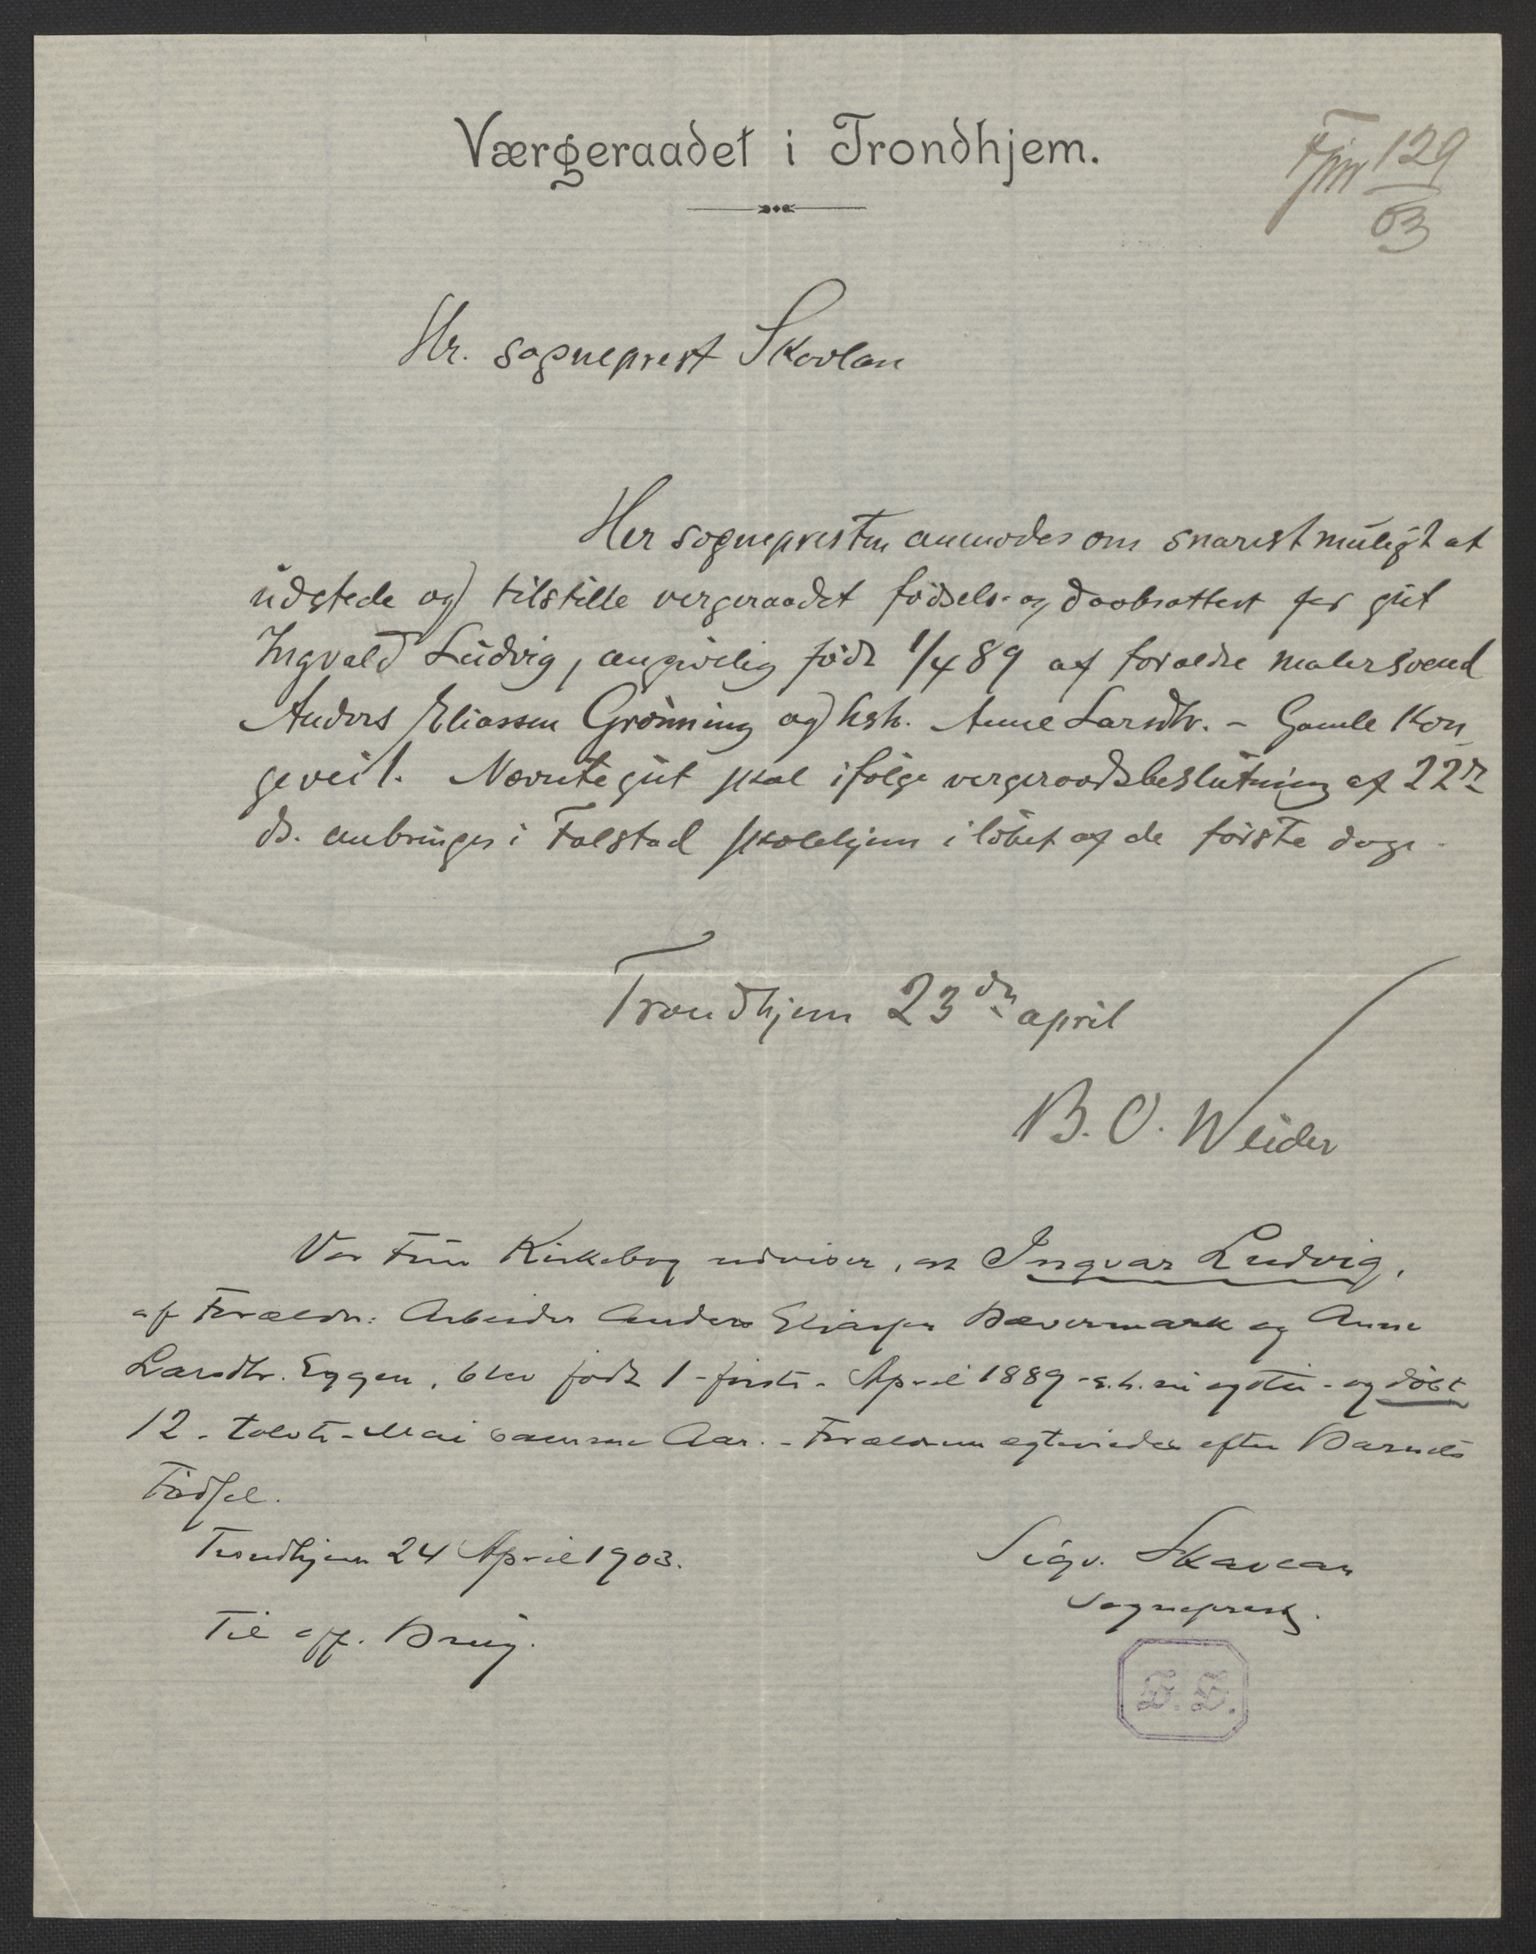 Værgeraadet i Trondhjem.
129
03
Hr. sogneprest Skavlan
Her sognepresten anmodes om snarest muligt at
udstede og tilstille vergeraadet fødsels- og daabsattest for gut
Ingvald Ludvig, angivelig født 1/4 89 af forældre malersvend
Anders Eliassen Grønning og hsh. Anne Larsdtr. – Gamle Kon
gevei 1. Nævnte gut skal ifølge vergeraadsbeslutning af 22de
ds. anbringes i Falstad skolehjem i løbet af de første dage.
Trondhjem 23de april
B. O. Weider
Vor Frue Kirkebog udviser, at Ingvar Ludvig,
af Forældre: Arbeider Anders Eliassen Bævermark og Anne
Larsdtr. Eggen, blev født 1 - første - April 1889 - et. h. ni og otti - og døbt
12 - tolvte - Mai samme Aar. - Forældrene egteviedes efter Barnets
Fødsel.
Trondhjem 24 April 1903.
Sigv. Skavlan
Sogneprest.
Til off. Brug.